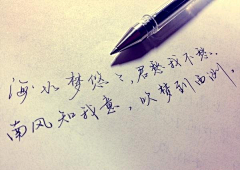 海水梦悠悠,君愁我亦愁.
南风知我意,吹梦到西洲.